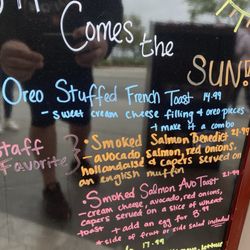 Comes the
SUN!
Oreo Stuffed French Toast 14.99
- sweet cream cheese filling & oreo pieces
+ make it a combo
Staff
Favorite
- Smoked Salmon Benedict 21.99
- avocado, salmon, red onions,
hollandaise & capers served on
an english muffin
- Smoked Salmon Avo Toast
- cream cheese, avocado, red onions,
capers served on a slice of wheat
toast + add an egg for
+ side of fruit or side salad included
17.99